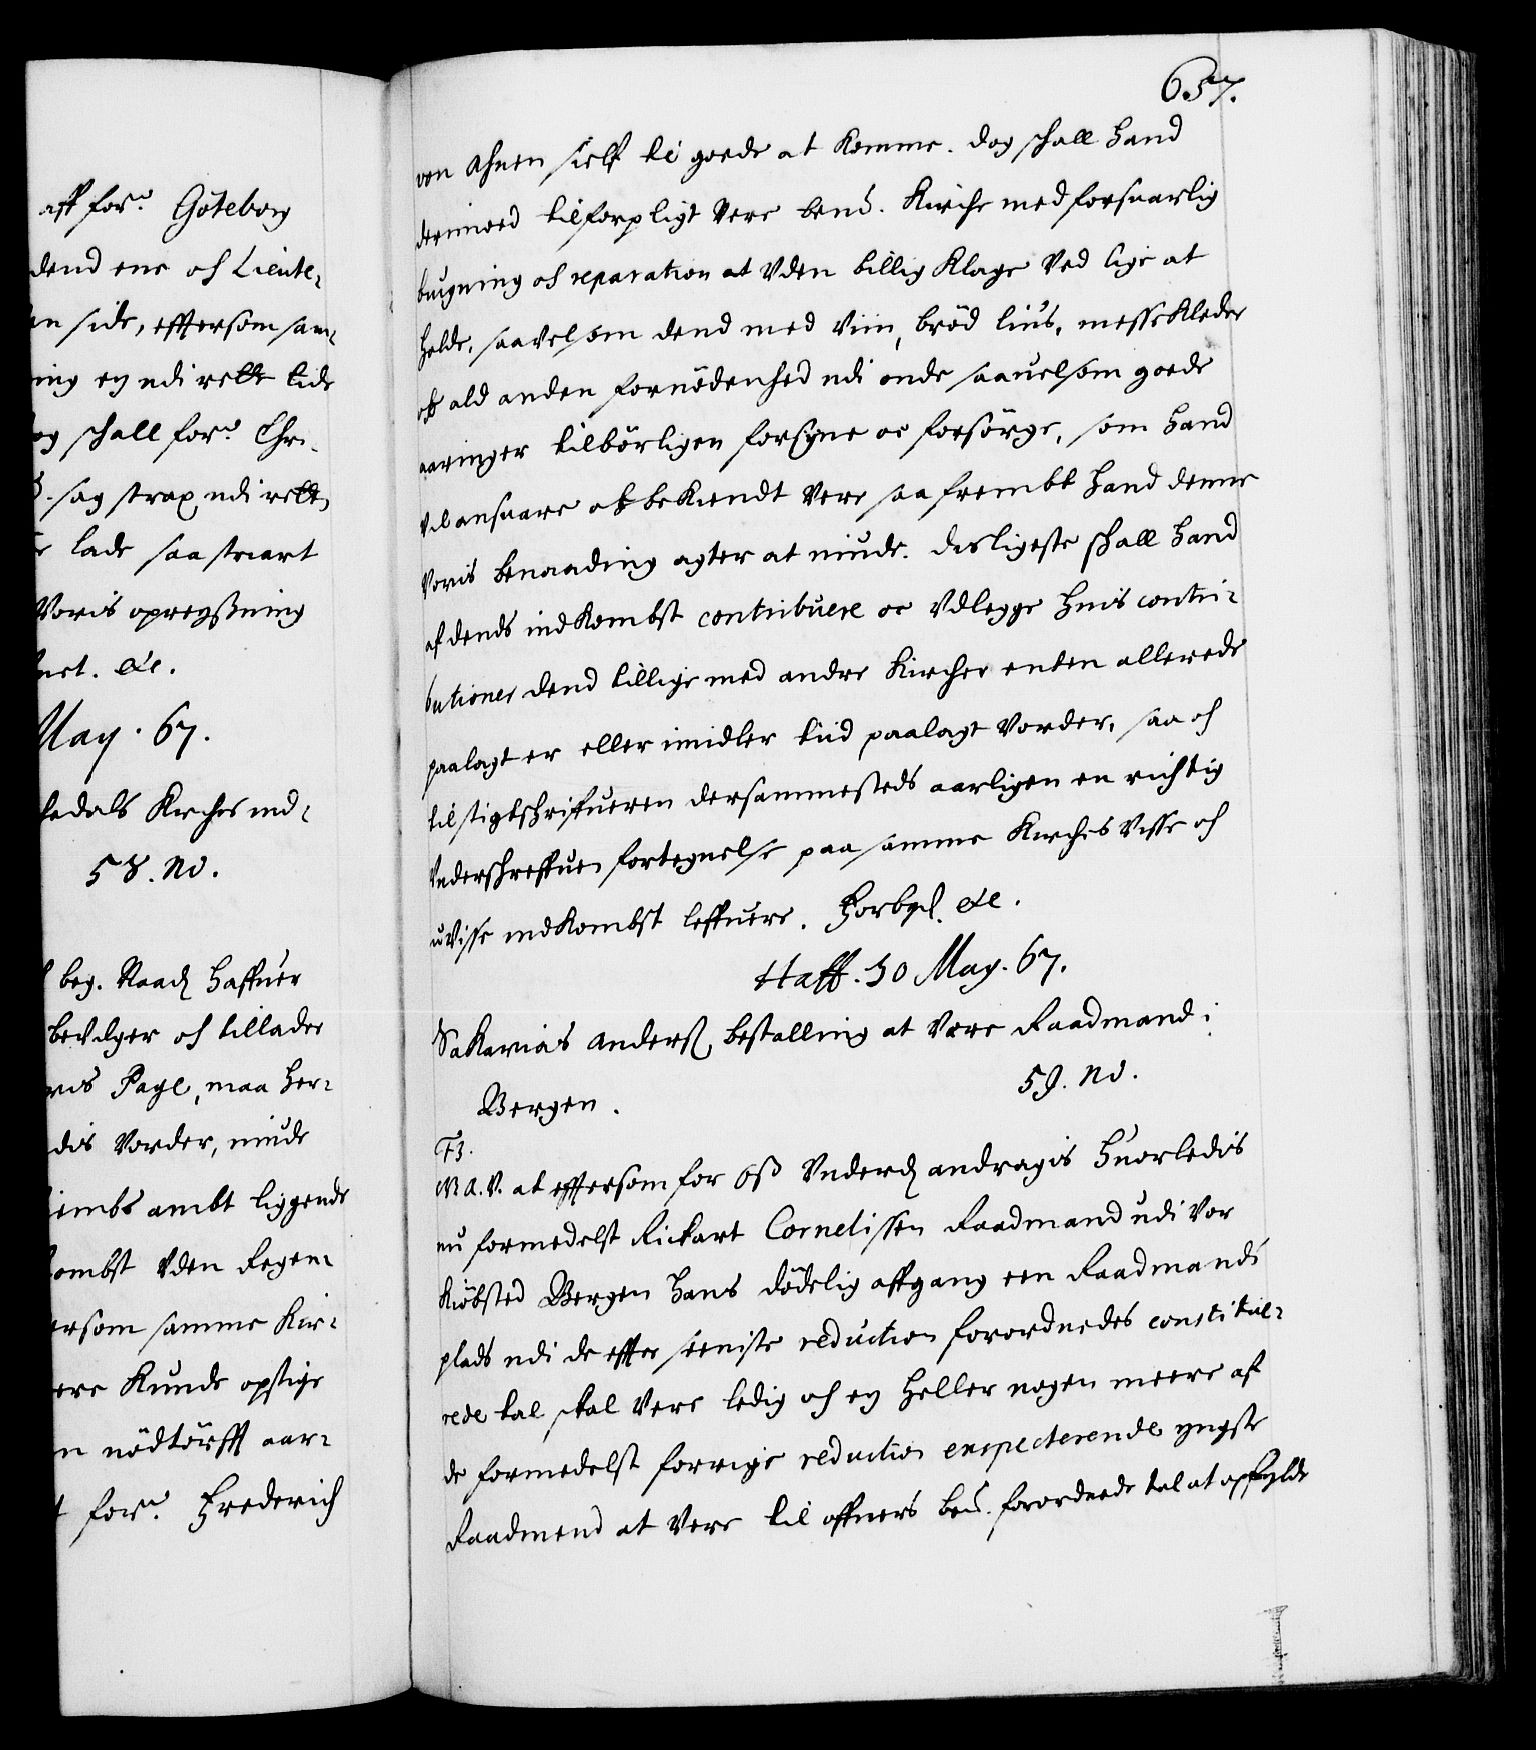 aff for.ᵉ Göteborg
dend ene oc Lieute-
en side, effersom sam-
ing ey udi rette tide
og schall for.ᵉ Chr.
sag strax udi rette
lade saa snart
Voris opreyßning
&c.
May. 67.
Kirches ind-
58. No.
beg. Naad Haffuer
bevilger och tillader
Page, maa her-
Vorder, niude
ambt liggende
kombst Vden Regen-
ersom samme Kir-
ere Kunde opstige
nödtörfft aar-
for.ᵉ Friderich
657.
von Ahnen sielf til goede at komme. dog schall Hand
derimoed tilforpligt Vere bem.ᵗᵉ Kirche med forsuarlig
bugning oc reparation at Vden billig Klage Ved lige at
holde, saavelsom dend med Viin, bröd liüs, messeKleder
och ald anden fornödenhed udi onde saauelsom goede
aaringer tilbörligen forsyne oc forsörge, som Hand
Vil ansuare och beKiendt Vere saa frembt Hand denne
Voris benaading agter at niude. desligeste schall Hand
af dends indkombst contribuere oc Vdlegge Huis contri-
butioner dend tillige med andre Kircher enten allerede
paalagt er eller imidler tiid paalagt Vorder, saa och
til stigtschrifueren dersammesteds aarligen en richtig
Vnderschreffuen fortegnelse paa samme Kirches Visse och
uVisse indkombst leffuere. Forbyd. &c.
Haff. 30 May. 67.
Sakarias Anders. bestalling at Vere Raadmand i
Bergen. 59. No.
F3.
M A. V. at effersom for oß Vnderd. andragis Huorledis
nu formedelst Rickart Cornelissen Raadmand udi Vor
Kiöbsted Bergen Hans dödelig affgang een Raadmands
plads udi de effter seeniste reduction forordnedes constitue-
rede tal skal Vere ledig och ey Heller nogen meere af
de formedelst forrige reduction expecterende yngste
Raadmend at Vere til offuers bem.ᵗᵉ forordnede tal at opfylde